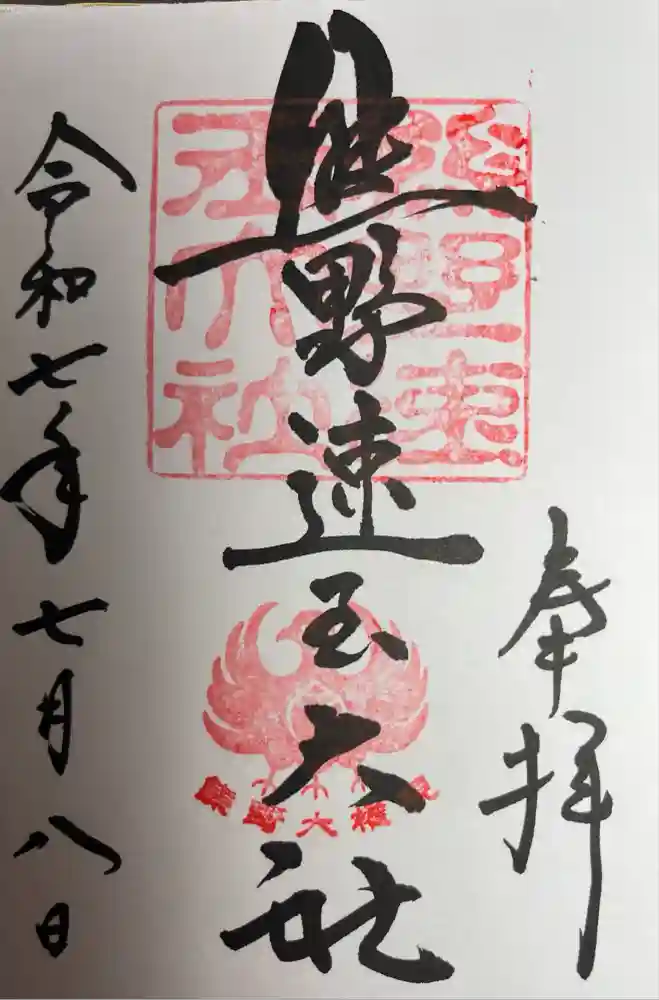 奉拝
熊野速玉大社
熊野速
玉大社
熊野大権現
令和七年七月八日